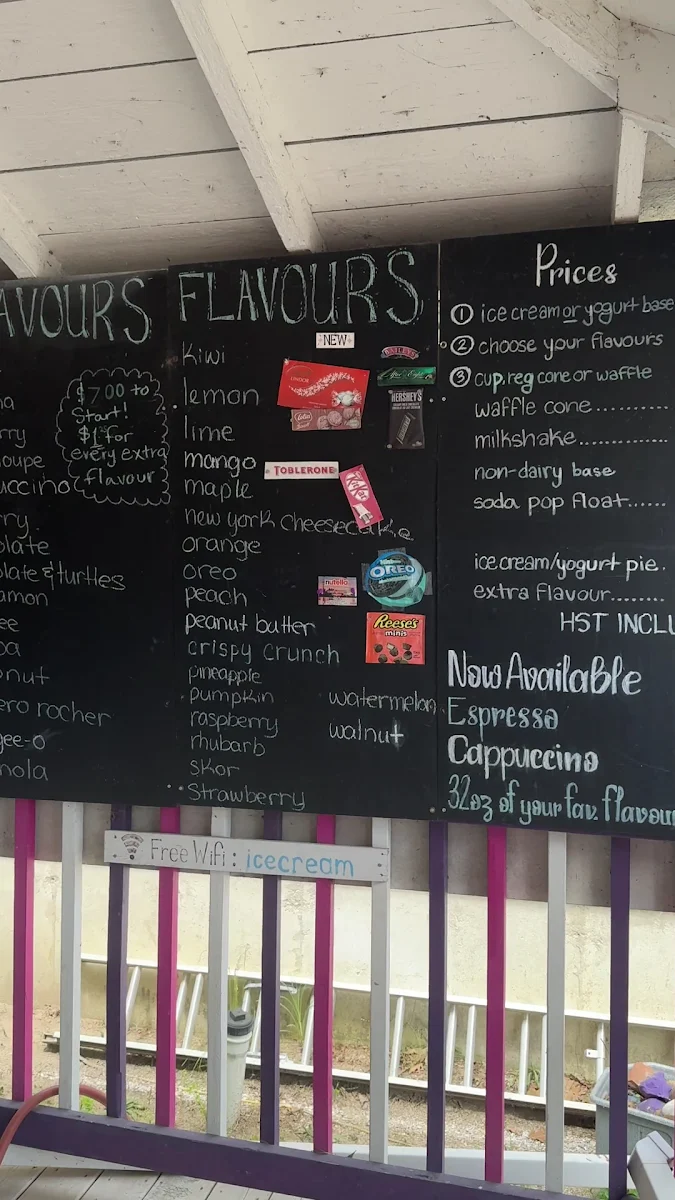 AVOURS
$7.00 to
Start!
$1.25 for
every extra
flavour
na
rry
oupe
uccino
rry
olate
olate & turtles
amon
ee
oa
onut
ero rocher
gee-o
nola
FLAVOURS
NEW
kiwi
lemon
lime
mango
maple
new york cheesecake
orange
oreo
peach
peanut butter
crispy crunch
pineapple
pumpkin
raspberry
rhubarb
skor
strawberry
watermelon
walnut
LINDOR
Lotus
After Eight
HERSHEY'S
TOBLERONE
KitKat
nutella
OREO
Reese's
minis
Prices
1 ice cream or yogurt base
2 choose your flavours
3 cup, reg cone or waffle
waffle cone..........
milkshake.............
non-dairy base
soda pop float......
ice cream/yogurt pie.
extra flavour........
HST INCLU
Now Available
Espresso
Cappuccino
32oz of your fav. flavour
Free Wifi : icecream